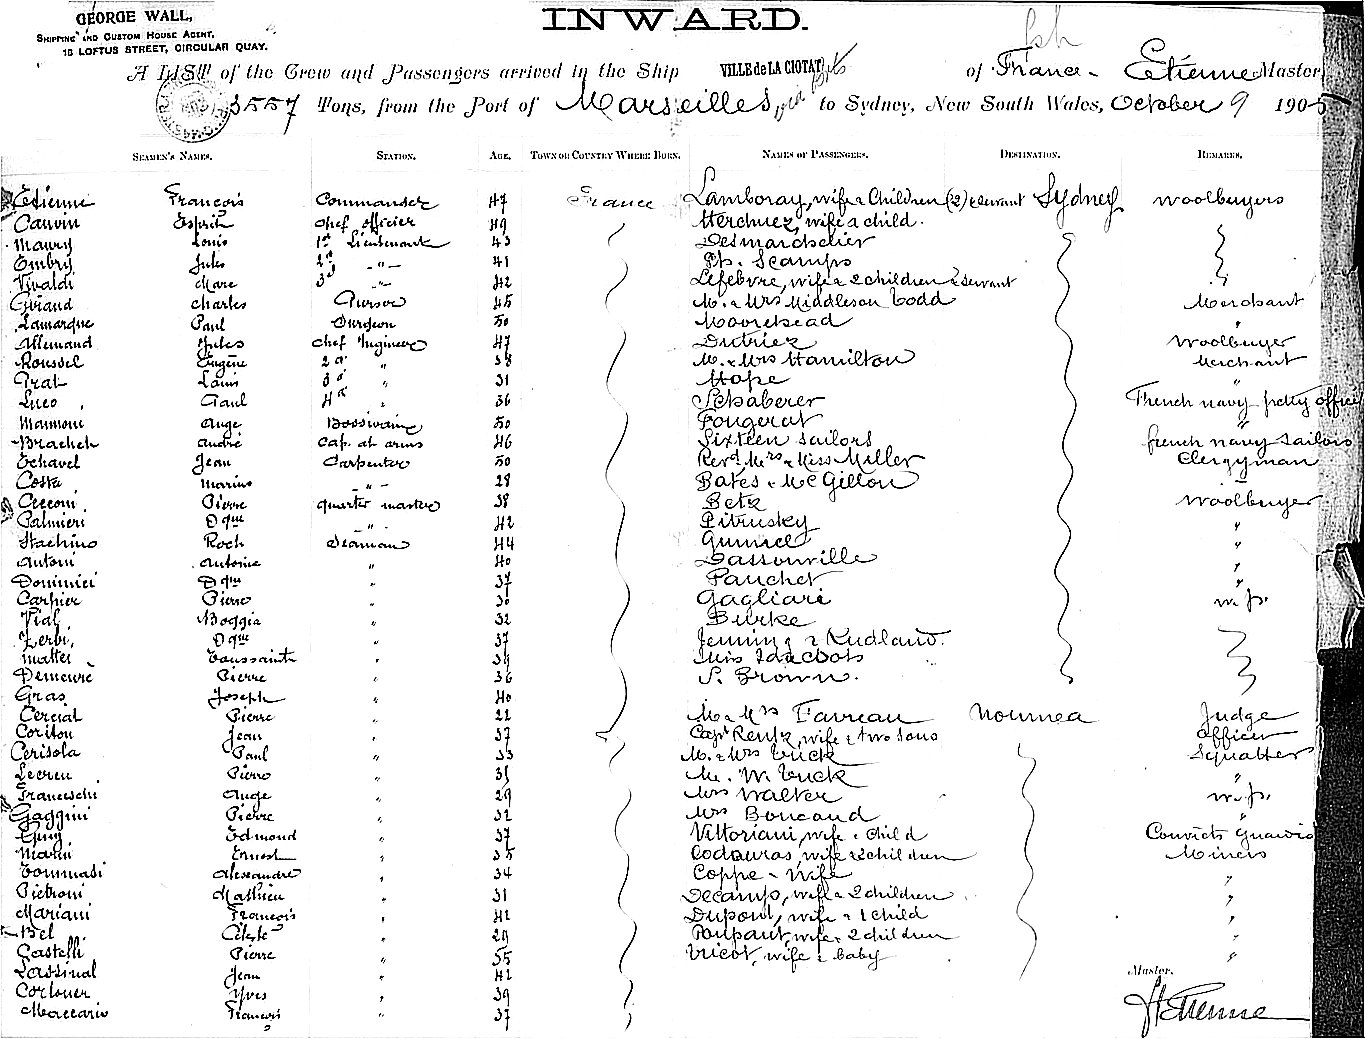 GEORGE WALL,
SHIPPING AND CUSTOM HOUSE AGENT,
16 LOFTUS STREET, CIRCULAR QUAY.
INWARD.
A LIST of the Crew and Passengers arrived in the Ship VILLE de LA CIOTAT of France - Etienne Master,
3557 Tons, from the Port of Marseilles via pts to Sydney, New South Wales, October 9 1905
SEAMEN'S NAMES. STATION. AGE. TOWN OR COUNTRY WHERE BORN. NAMES OF PASSENGERS. DESTINATION. REMARKS.
Etienne François Commander 47 France Lamboray, wife & Children (2) servant Sydney Woolbuyers
Cauvin Esprit Chef officier 49 wife & child.
Maury Louis 1st Lieutenant 43 Desmarchelier
Embry Jules 2d -"- 41 Ph. Scamps
Vivaldi Marc 3d -"- 42 Lefebvre, wife & 2 children & servant
Giraud Charles Pursor 45 M. & Mrs Middleson Todd Merchant
Lamarque Paul Surgeon 50 Moorehead "
Allemand Jules Chef Ingineer 47 Dutriez Woolbuyer
Roussel Eugène 2d " M. & Mrs Hamilton Merchant
Prat Louis 3d " 31 Hope "
Luco Paul 4th " 36 Schaberer French navy petty officer
Ange 50 Fougerat "
Brachet André Cap. at arms 46 Sixteen sailors french navy sailors
Echavel Jean Carpenter 50 Revd Mrs & Miss Miller Clergyman
Costa Marius -"- 28 Bates & McGillon -
Cecconi Pierre quarter master 38 Betz Woolbuyer
Palmieri Dque -"- 42 Pitrusky "
Stachino Roch Seaman 44 "
Antoni Antoine " 40 Dassonville "
Dominici Dque " 37 Pauchet "
Carpier Pierre " 30 Gagliari w.p.
Vial Boggia " 32 Burke
Zerbi Dque " 37 Jenning & Rudland.
Mattei Toussaint "
Demeure Pierre " 36 S. Brown.
Gras Joseph " 40
Pierre " 22 M. & Mrs Favreau Noumea Judge
Coriton Jean " 37 Capt Rentz, wife & two sons Officer
Cerisola Paul " 33 M. & Mrs Squatter
Pierre " M. W. "
Franceschi Ange " 29 Mrs Walter w.p.
Gaggini Pierre " 32 Mrs Boucaud "
Edmond " 37 Vittoriani, wife & child Convicts Guards
Ernest " 35 Codauras, wife & 2 children Miners
Tommasi Alexandre " 34 Coppe & Wife "
Pietroni Mathieu " 31 Decamp, wife & 2 children "
Mariani François " 42 Dupont, wife & 1 child "
Bel Céleste " 29 Poupaut, wife & 2 children "
Castelli Pierre " 55 wife & baby "
Lassinal Jean " 42 Master.
Corlouer Yves " 39
Maccario François " 37 Etienne